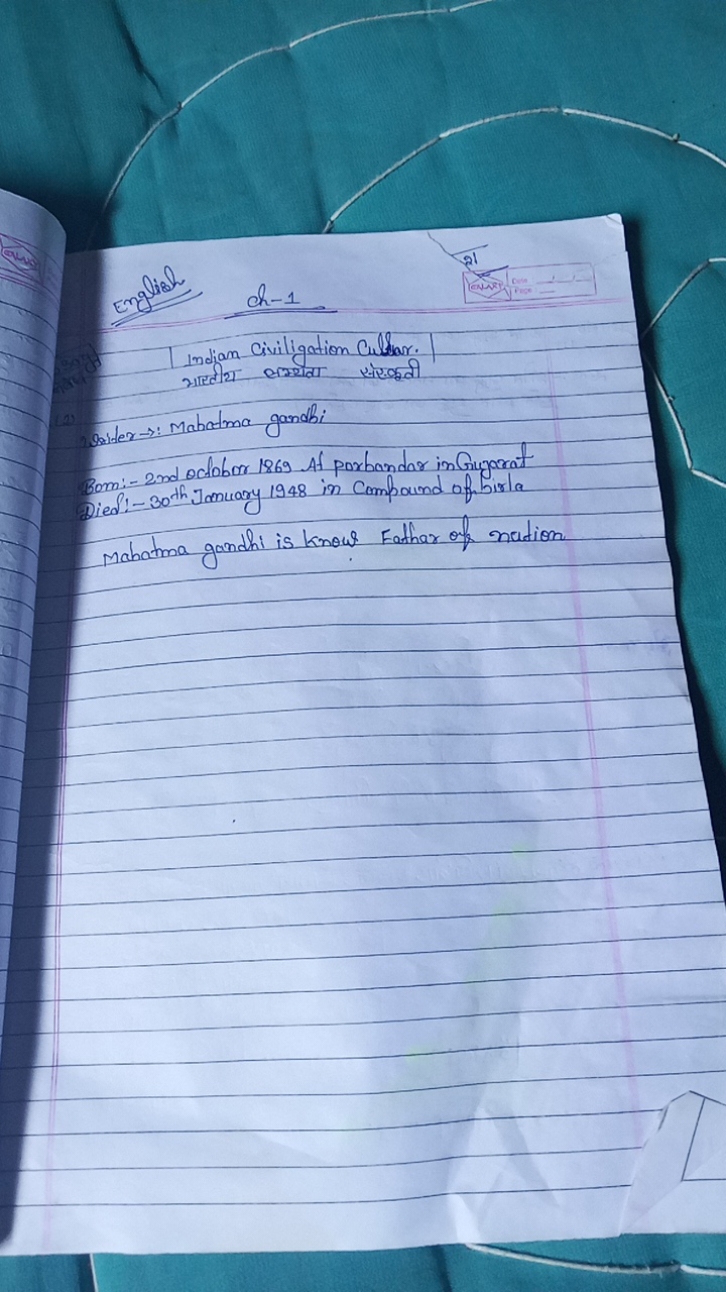 English
ch-1
21
Date
Page
Indian Civiligation Cultar.
भारतीय सभ्यता संस्कृती
Mahatma gandhi
Born:- 2nd octobor 1869 At porbandar in Gujarat
Died:- 30th January 1948 in Compound of birla
Mahatma gandhi is know Fathar of nation